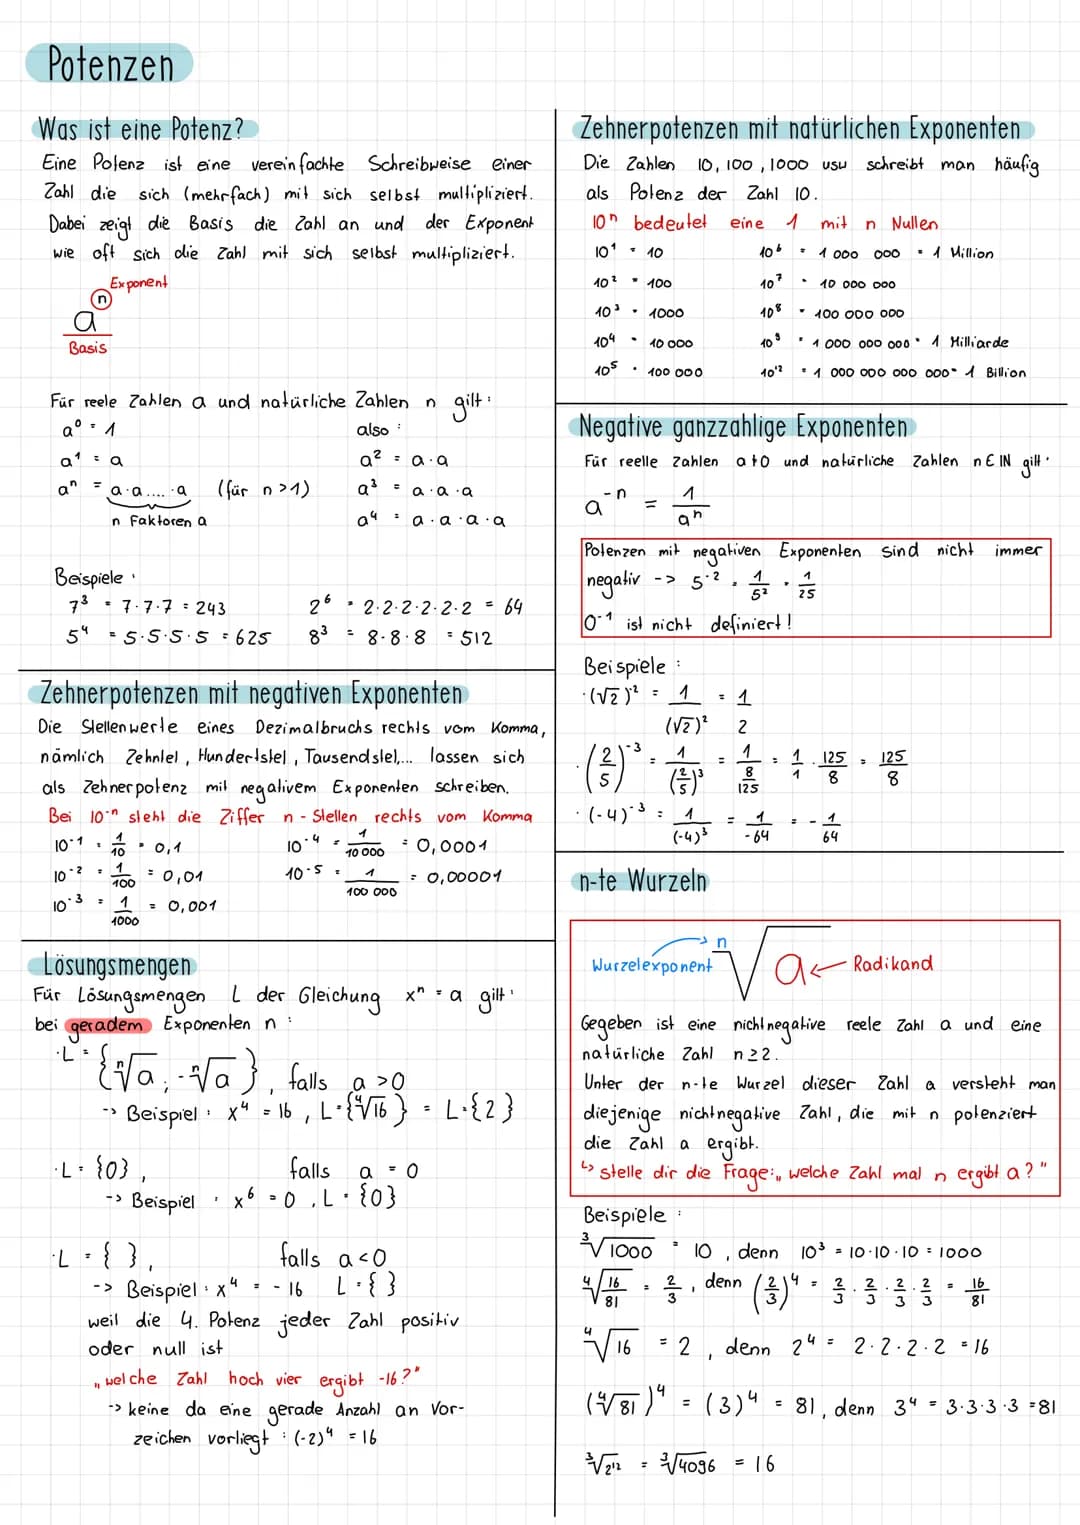 Potenzen
Was ist eine Potenz?
Eine Potenz ist eine vereinfachte Schreibweise einer
Zahl die sich (mehrfach) mit sich selbst multipliziert.
Dabei zeigt die Basis die Zahl an und der Exponent
wie oft sich die Zahl mit sich selbst multipliziert.
Exponent
aⁿ
Basis
Für reele Zahlen a und natürliche Zahlen n gilt:
a⁰ = 1 also:
a¹ = a a² = a·a
aⁿ = a·a....·a (für n>1) a³ = a·a·a
n Faktoren a a⁴ = a·a·a·a
Beispiele:
7³ = 7·7·7 = 243 2⁶ = 2·2·2·2·2·2 = 64
5⁴ = 5·5·5·5 = 625 8³ = 8·8·8 = 512
Zehnerpotenzen mit negativen Exponenten
Die Stellenwerte eines Dezimalbruchs rechts vom Komma,
nämlich Zehntel, Hundertstel, Tausendstel,... lassen sich
als Zehnerpotenz mit negativem Exponenten schreiben.
Bei 10⁻ⁿ steht die Ziffer n-Stellen rechts vom Komma
10⁻¹ = 1/10 = 0,1 10⁻⁴ = 1/10 000 = 0,0001
10⁻² = 1/100 = 0,01 10⁻⁵ = 1/100 000 = 0,00001
10⁻³ = 1/1000 = 0,001
Lösungsmengen
Für Lösungsmengen L der Gleichung xⁿ = a gilt:
bei geradem Exponenten n:
·L = {ⁿ√a; -ⁿ√a}, falls a>0
-> Beispiel: x⁴ = 16, L={⁴√16} = L={2}
·L = {0}, falls a = 0
-> Beispiel: x⁶ = 0, L = {0}
·L = { }, falls a<0
-> Beispiel: x⁴ = -16 L = { }
weil die 4. Potenz jeder Zahl positiv
oder null ist
„welche Zahl hoch vier ergibt -16?"
-> keine da eine gerade Anzahl an Vor-
zeichen vorliegt: (-2)⁴ = 16
Zehnerpotenzen mit natürlichen Exponenten
Die Zahlen 10, 100, 1000 usw schreibt man häufig
als Potenz der Zahl 10.
10ⁿ bedeutet eine 1 mit n Nullen
10¹ = 10 10⁶ = 1 000 000 = 1 Million
10² = 100 10⁷ = 10 000 000
10³ = 1000 10⁸ = 100 000 000
10⁴ = 10 000 10⁹ = 1 000 000 000 = 1 Milliarde
10⁵ = 100 000 10¹² = 1 000 000 000 000 = 1 Billion
Negative ganzzahlige Exponenten
Für reelle Zahlen a≠0 und natürliche Zahlen n∈IN gilt:
a⁻ⁿ = 1/aⁿ
Potenzen mit negativen Exponenten sind nicht immer
negativ -> 5⁻² = 1/5² = 1/25
0⁻¹ ist nicht definiert!
Beispiele:
·(√2)² = 1/(√2)² = 1/2
·(2/5)⁻³ = 1/(2/5)³ = 1/(8/125) = 1/1 · 125/8 = 125/8
·(-4)⁻³ = 1/(-4)³ = 1/-64 = -1/64
n-te Wurzeln
Wurzelexponent ⁿ√a Radikand
Gegeben ist eine nichtnegative reele Zahl a und eine
natürliche Zahl n≥2.
Unter der n-te Wurzel dieser Zahl a versteht man
diejenige nichtnegative Zahl, die mit n potenziert
die Zahl a ergibt.
↳ stelle dir die Frage: „welche Zahl mal n ergibt a?"
Beispiele:
³√1000 = 10, denn 10³ = 10·10·10 = 1000
⁴√16/81 = 2/3, denn (2/3)⁴ = 2/3·2/3·2/3·2/3 = 16/81
⁴√16 = 2, denn 2⁴ = 2·2·2·2 = 16
(⁴√81)⁴ = (3)⁴ = 81, denn 3⁴ = 3·3·3·3 = 81
³√2¹² = ³√4096 = 16